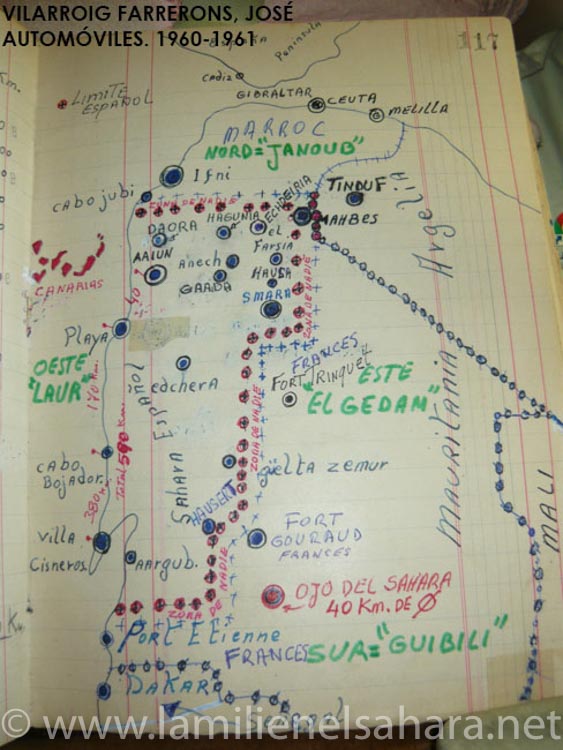 VILARROIG FARRERONS, JOSÉ
AUTOMÓVILES. 1960-1961
117
España
Peninsula
Cadiz
GIBRALTAR
CEUTA
MELILLA
LIMITE
ESPAÑOL
MARROC
NORD="JANOUB"
Ifni
Cabo jubi
ZONA DE NADIE
ECHDEIRIA
TINDUF
DAORA
HAGUNIA
MAHBES
el
FARSIA
AAIUN
Anech
HAUSA
GAADA
CANARIAS
SMARA
ZONA DE NADIE
Argelia
40
PLAYA
FRANCES
FORT TRINQUET
OESTE
"LAUR"
edchera
ESTE
"EL GEDAM"
140 Km.
Total 590 Km.
Sahara Español
ZONA DE NADIE
MAURITAMIA
MALI
CABO
BOJADOR
güelta zemur
380 K
HAUSERT
Villa
Cisneros
Aargub.
FORT
GOURAUD
FRANCES
OJO DEL SAHARA
40 Km. DE Ø
ZONA DE NADIE
Port Etienne
FRANCES
SUR="GUIBILI"
DAKAR
Senegal
© www.lamilienelsahara.net